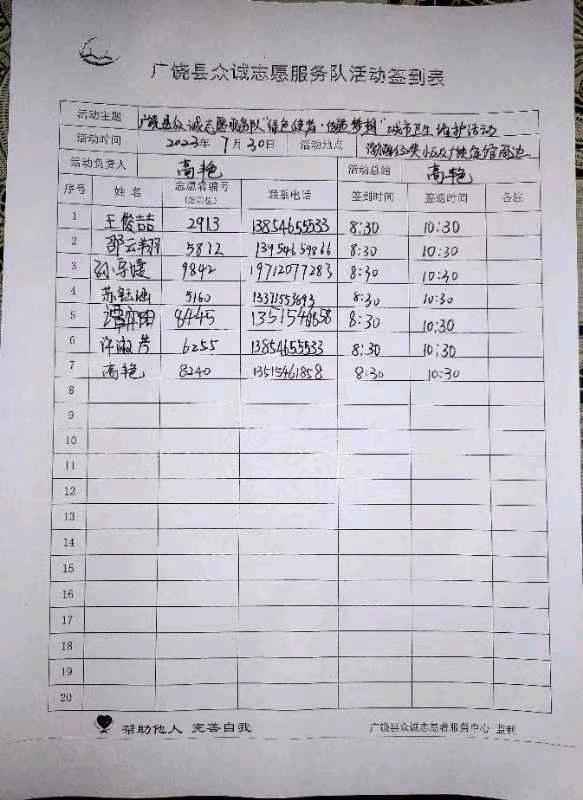 广饶县众诚志愿服务队活动签到表
活动主题 广饶县众诚志愿服务队"绿色使者·传递梦想"城市卫生维护活动
活动时间 2023年7月30日 活动地点 周边
活动负责人 高艳 活动总结 高艳
序号 姓名 志愿者编号(后四位) 联系电话 签到时间 签退时间 备注
1 王俊喆 2913 13854655533 8:30 10:30
2 邵云翔 5812 13954659866 8:30 10:30
3 孙 婕 9842 19712077283 8:30 10:30
4 苏钰涵 5160 8:30 10:30
5 谭 阳 8445 8:30 10:30
6 许淑芳 6255 13854655533 8:30 10:30
7 高艳 8240 13515461858 8:30 10:30
8
9
10
11
12
13
14
15
16
17
18
19
20
帮助他人 完善自我 广饶县众诚志愿者服务中心 监制